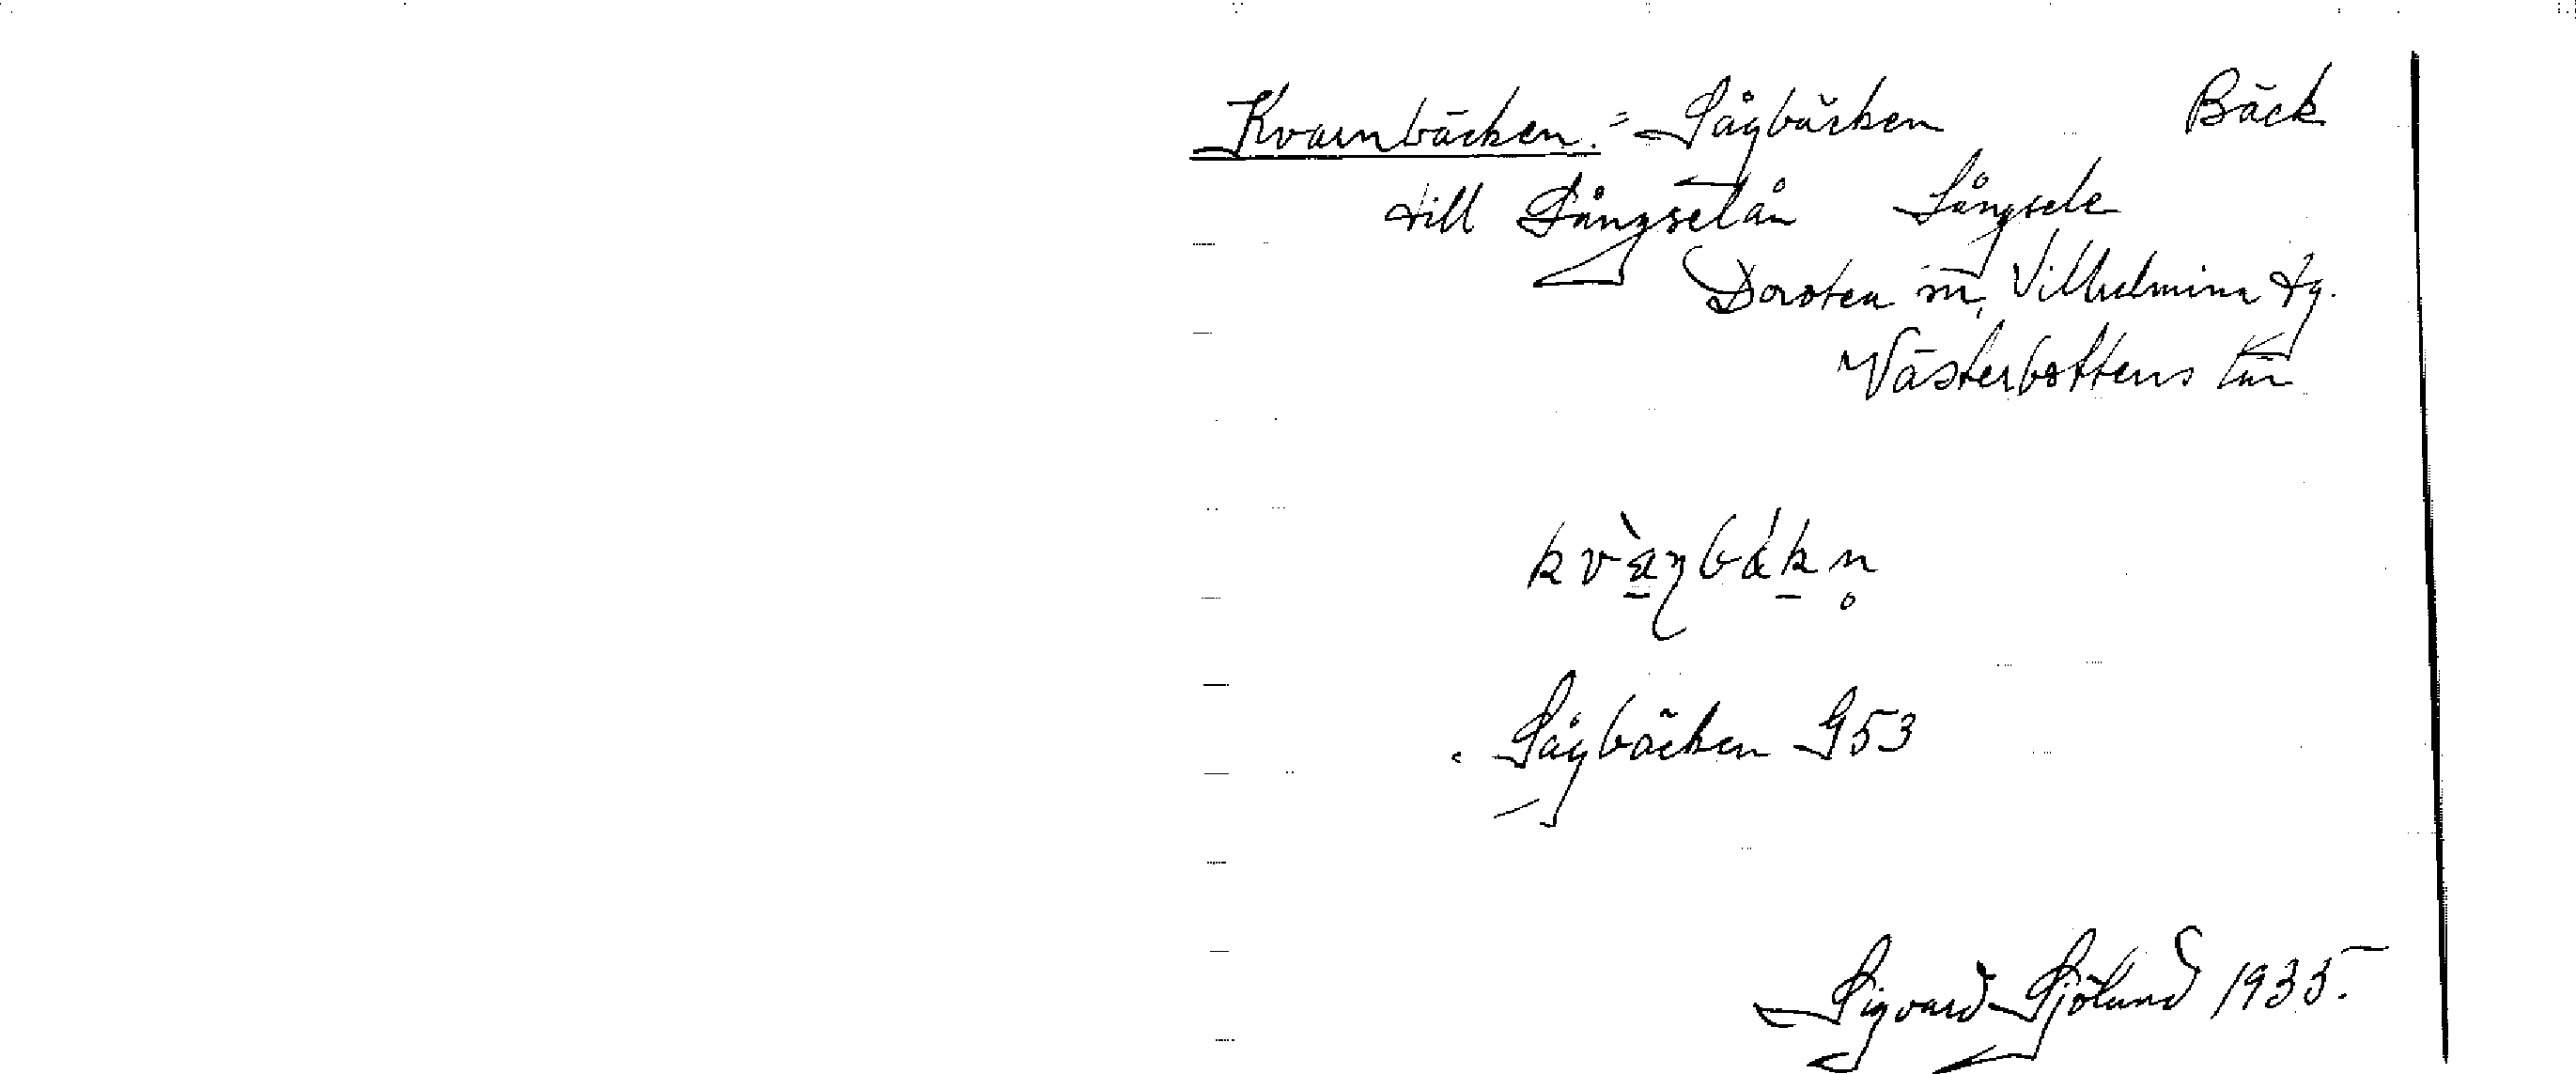 Kvarnbäcken. = Sågbäcken Bäck
till Långselån Långsele
Dorotea sn, Vilhelmina tg.
Västerbottens län
kvàɳbák̠n̥
Sågbäcken G53
Sigvard Sjölund 1935.